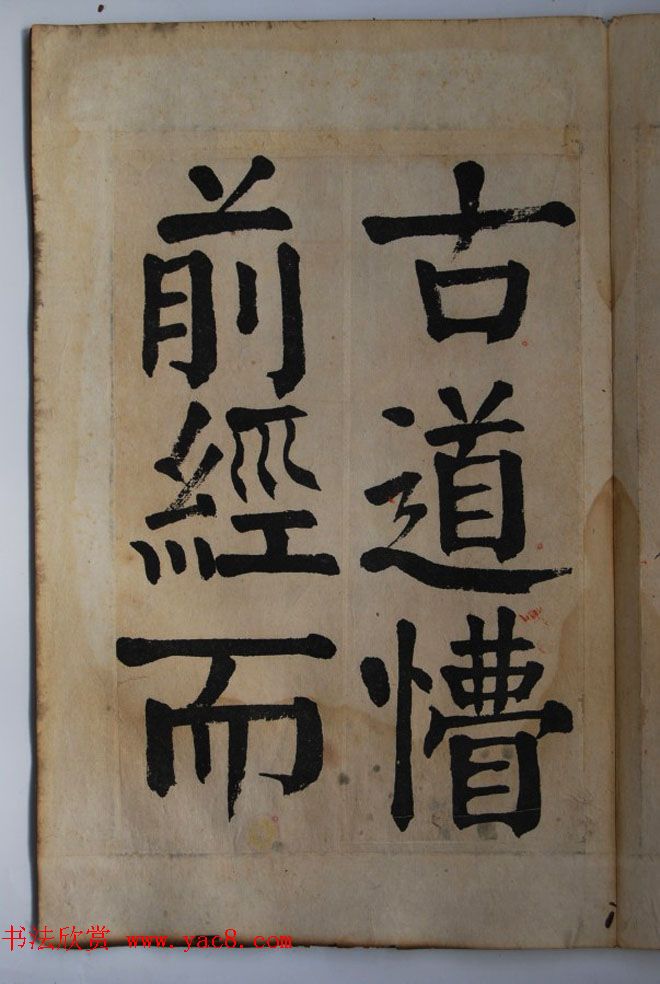 古道懵
前經而
书法欣赏 www.yac8.com